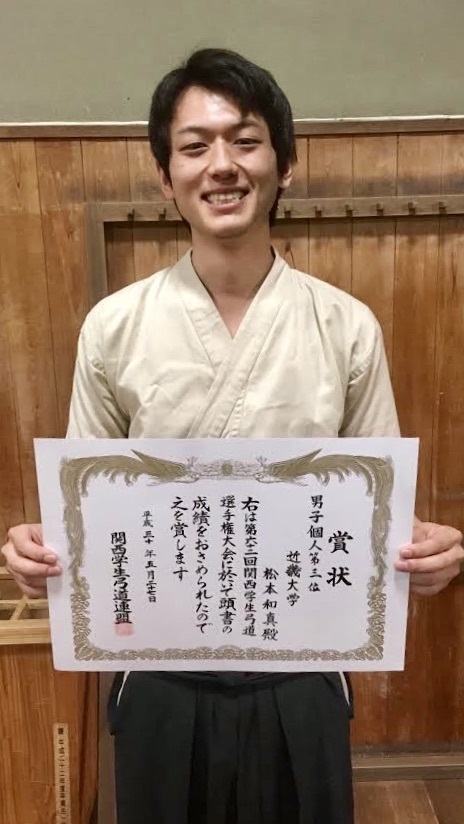 賞状
男子個人第三位
近畿大学
松本和真殿
右は第六三回関西学生弓道
選手権大会に於いて頭書の
成績をおさめられたので
之を賞します
平成三十年五月二十七日
関西学生弓道連盟
平成二十二年度卒業生